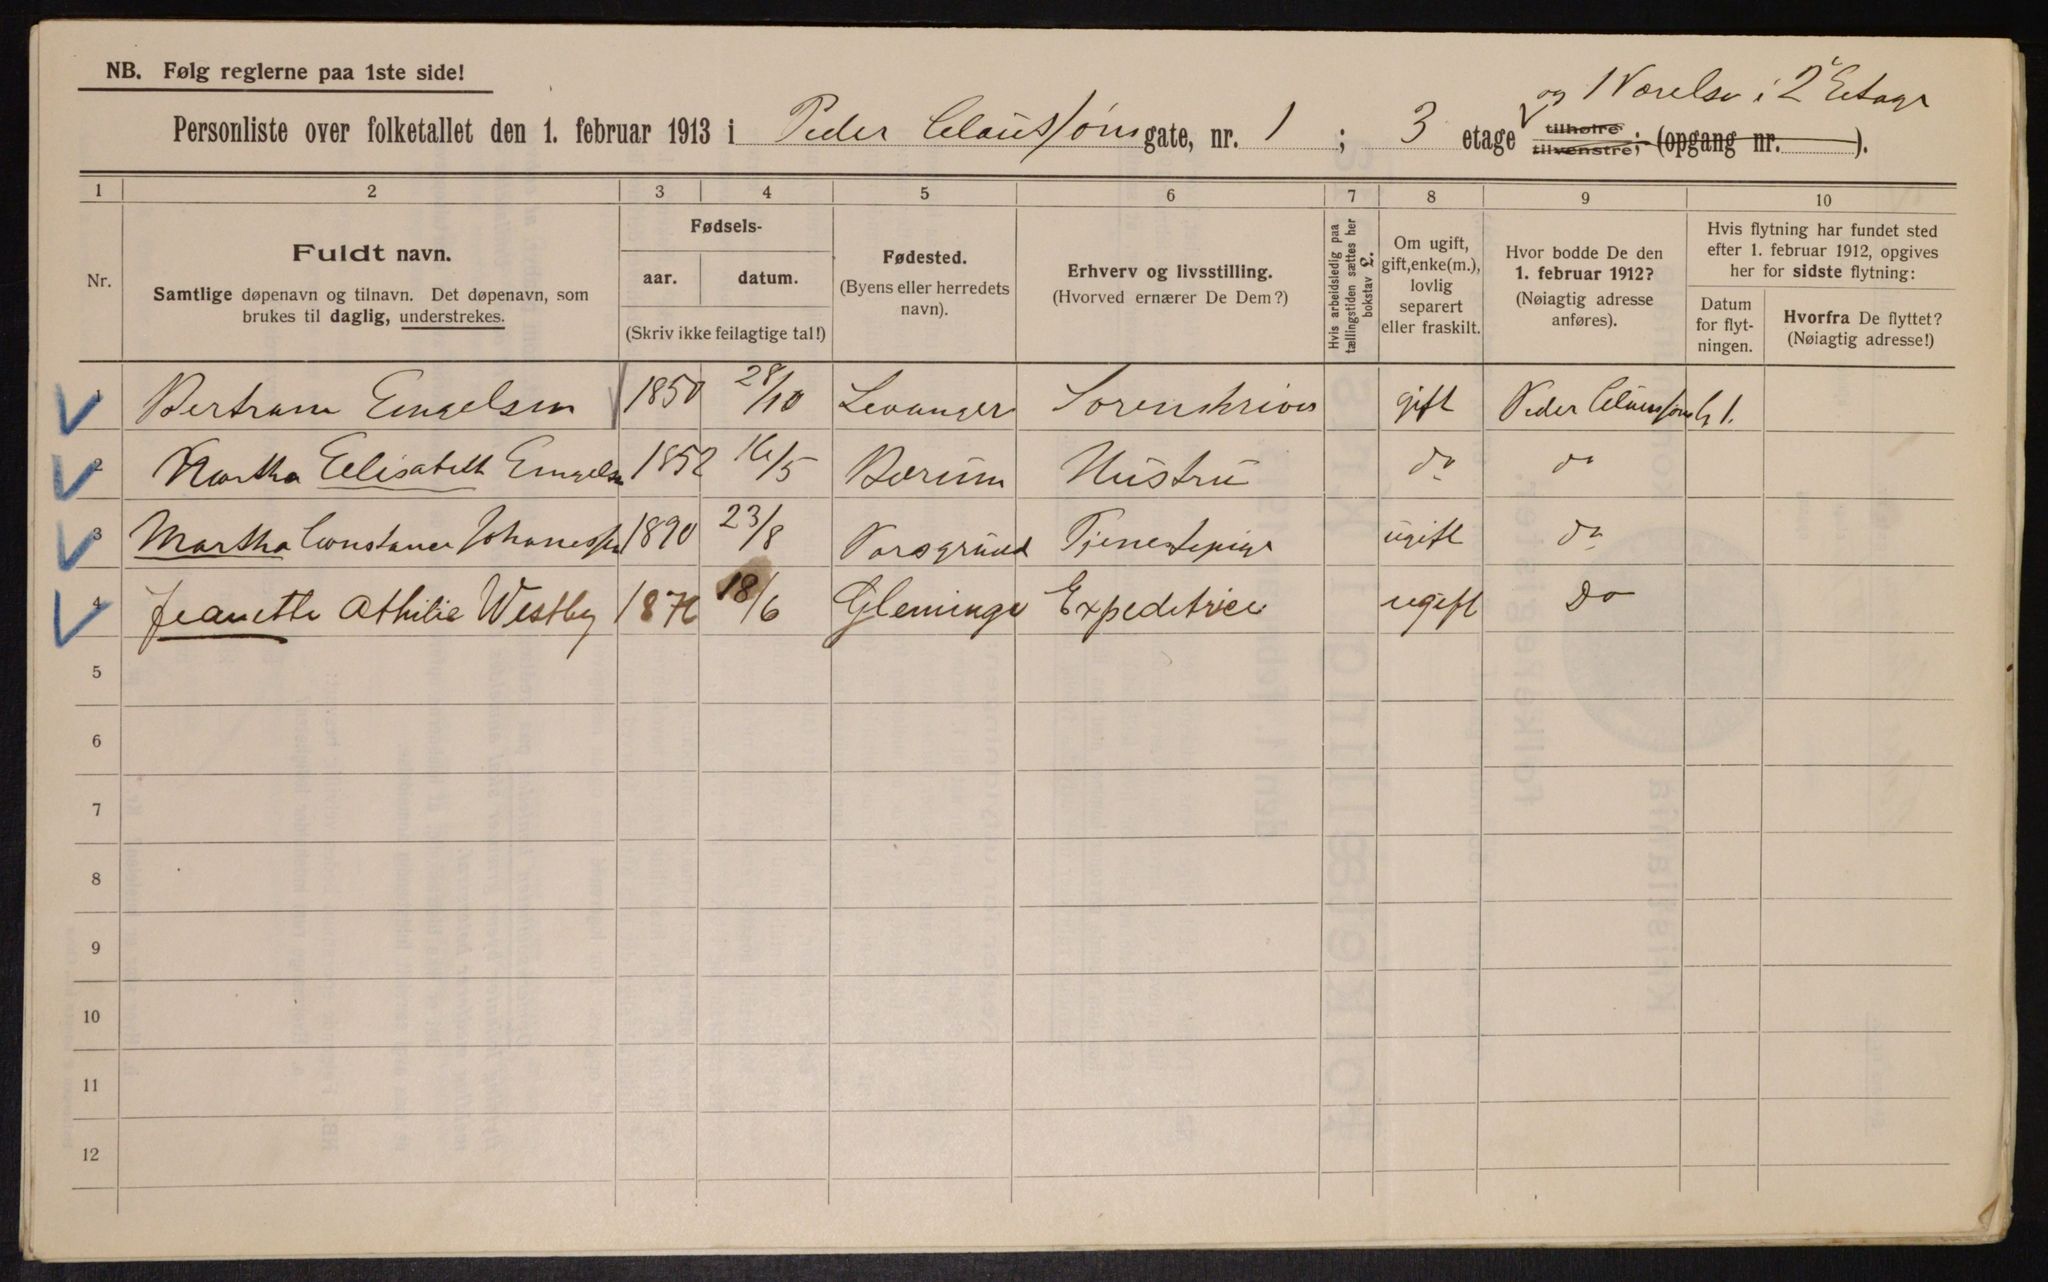 og 1 Værelse i 2 Etage
NB. Følg reglerne paa 1ste side!
Personliste over folketallet den 1. februar 1913 i Peder Claussøns gate, nr. 1 ; 3 etage tilhøire tilvenstre; (opgang nr. ).
1 2 3 4 5 6 7 8 9 10
Nr.
Fuldt navn.
Samtlige døpenavn og tilnavn. Det døpenavn, som
brukes til daglig, understrekes.
Fødsels-
aar. datum.
(Skriv ikke feilagtige tal!)
Fødested.
(Byens eller herredets
navn).
Erhverv og livsstilling.
(Hvorved ernærer De Dem?)
Hvis arbeidsledig paa
tællingstiden sættes her
bokstav L.
Om ugift,
gift, enke(m.),
lovlig
separert
eller fraskilt.
Hvor bodde De den
1. februar 1912?
(Nøiagtig adresse
anføres).
Hvis flytning har fundet sted
efter 1. februar 1912, opgives
her for sidste flytning:
Datum
for flyt-
ningen.
Hvorfra De flyttet?
(Nøiagtig adresse!)
1 Bertram Engelsen 1850 28/10 Levanger Sorenskriver gift Peder Claussøns G 1.
2 Martha Elisabeth Engelsen 1852 16/5 Bærum Hustru do do
3 Martha Constance Johanessen 1890 23/8 Porsgrund Tjenestepige ugift do
4 Jeanette Othilie Westby 1876 18/6 Gleminge Expeditrice ugift Do
5
6
7
8
9
10
11
12